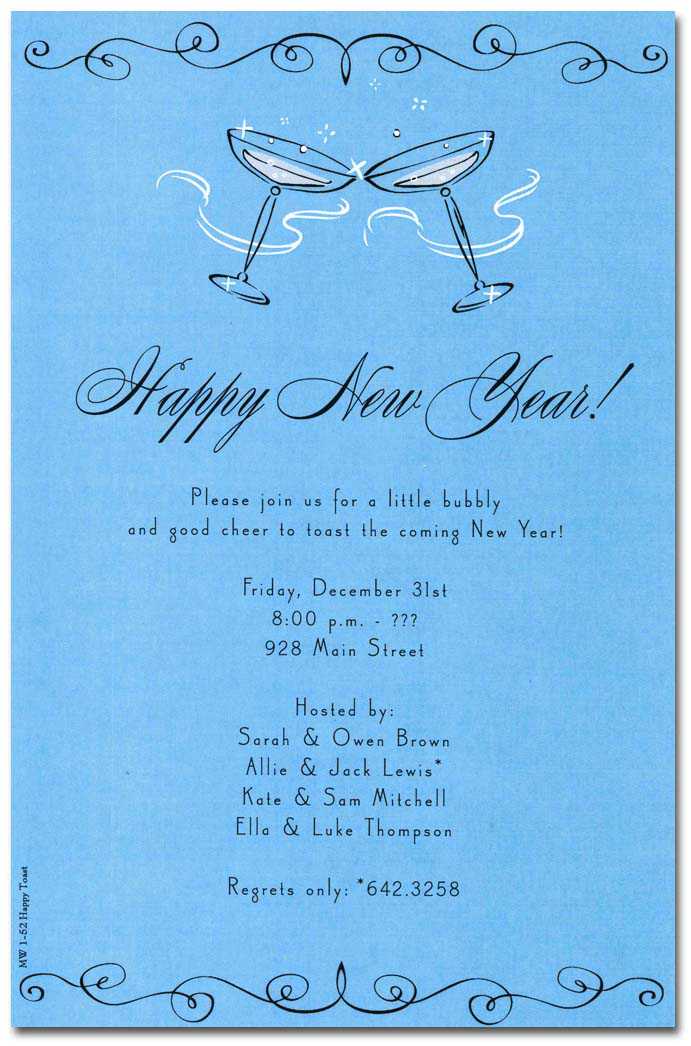 Happy New Year!
Please join us for a little bubbly
and good cheer to toast the coming New Year!
Friday, December 31st
8:00 p.m. - ???
928 Main Street
Hosted by:
Sarah & Owen Brown
Allie & Jack Lewis*
Kate & Sam Mitchell
Ella & Luke Thompson
Regrets only: *642.3258
MW 1-52 Happy Toast